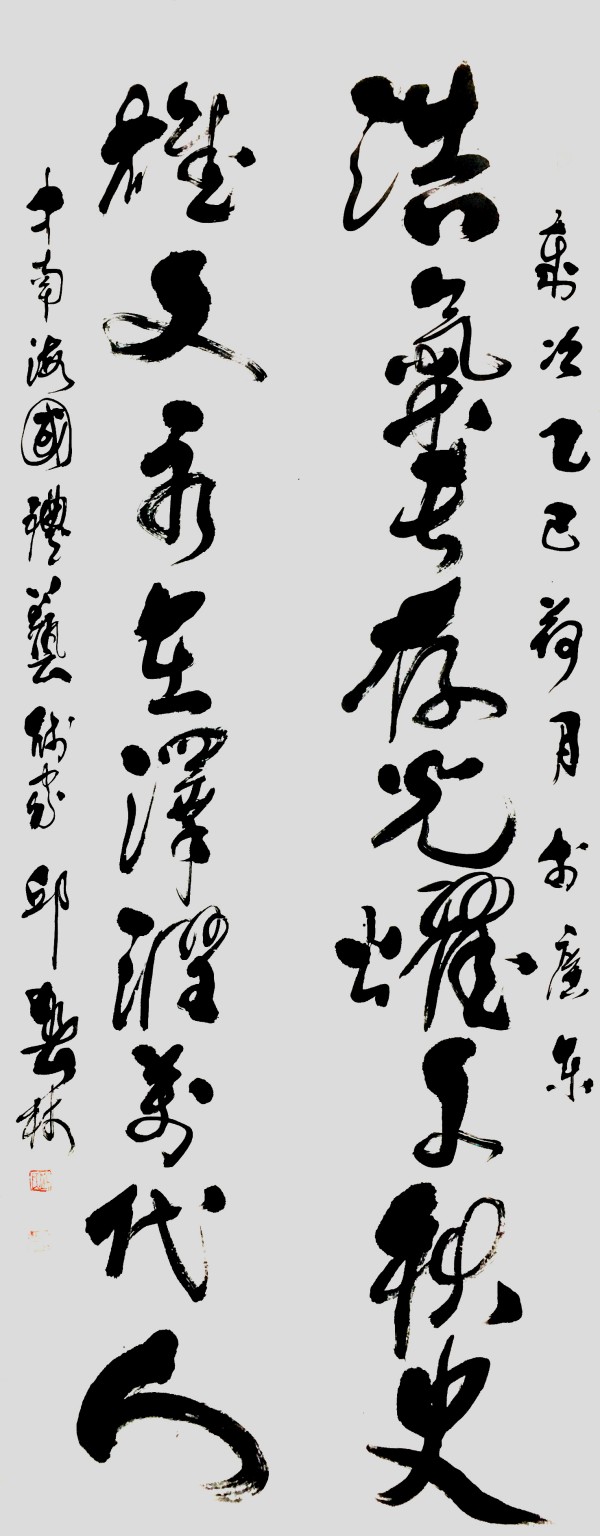 歲次乙巳荷月於廣东
浩氣長存光耀千秋史
雄文永在澤潤萬代人
中南海國禮藝術家邱藝林